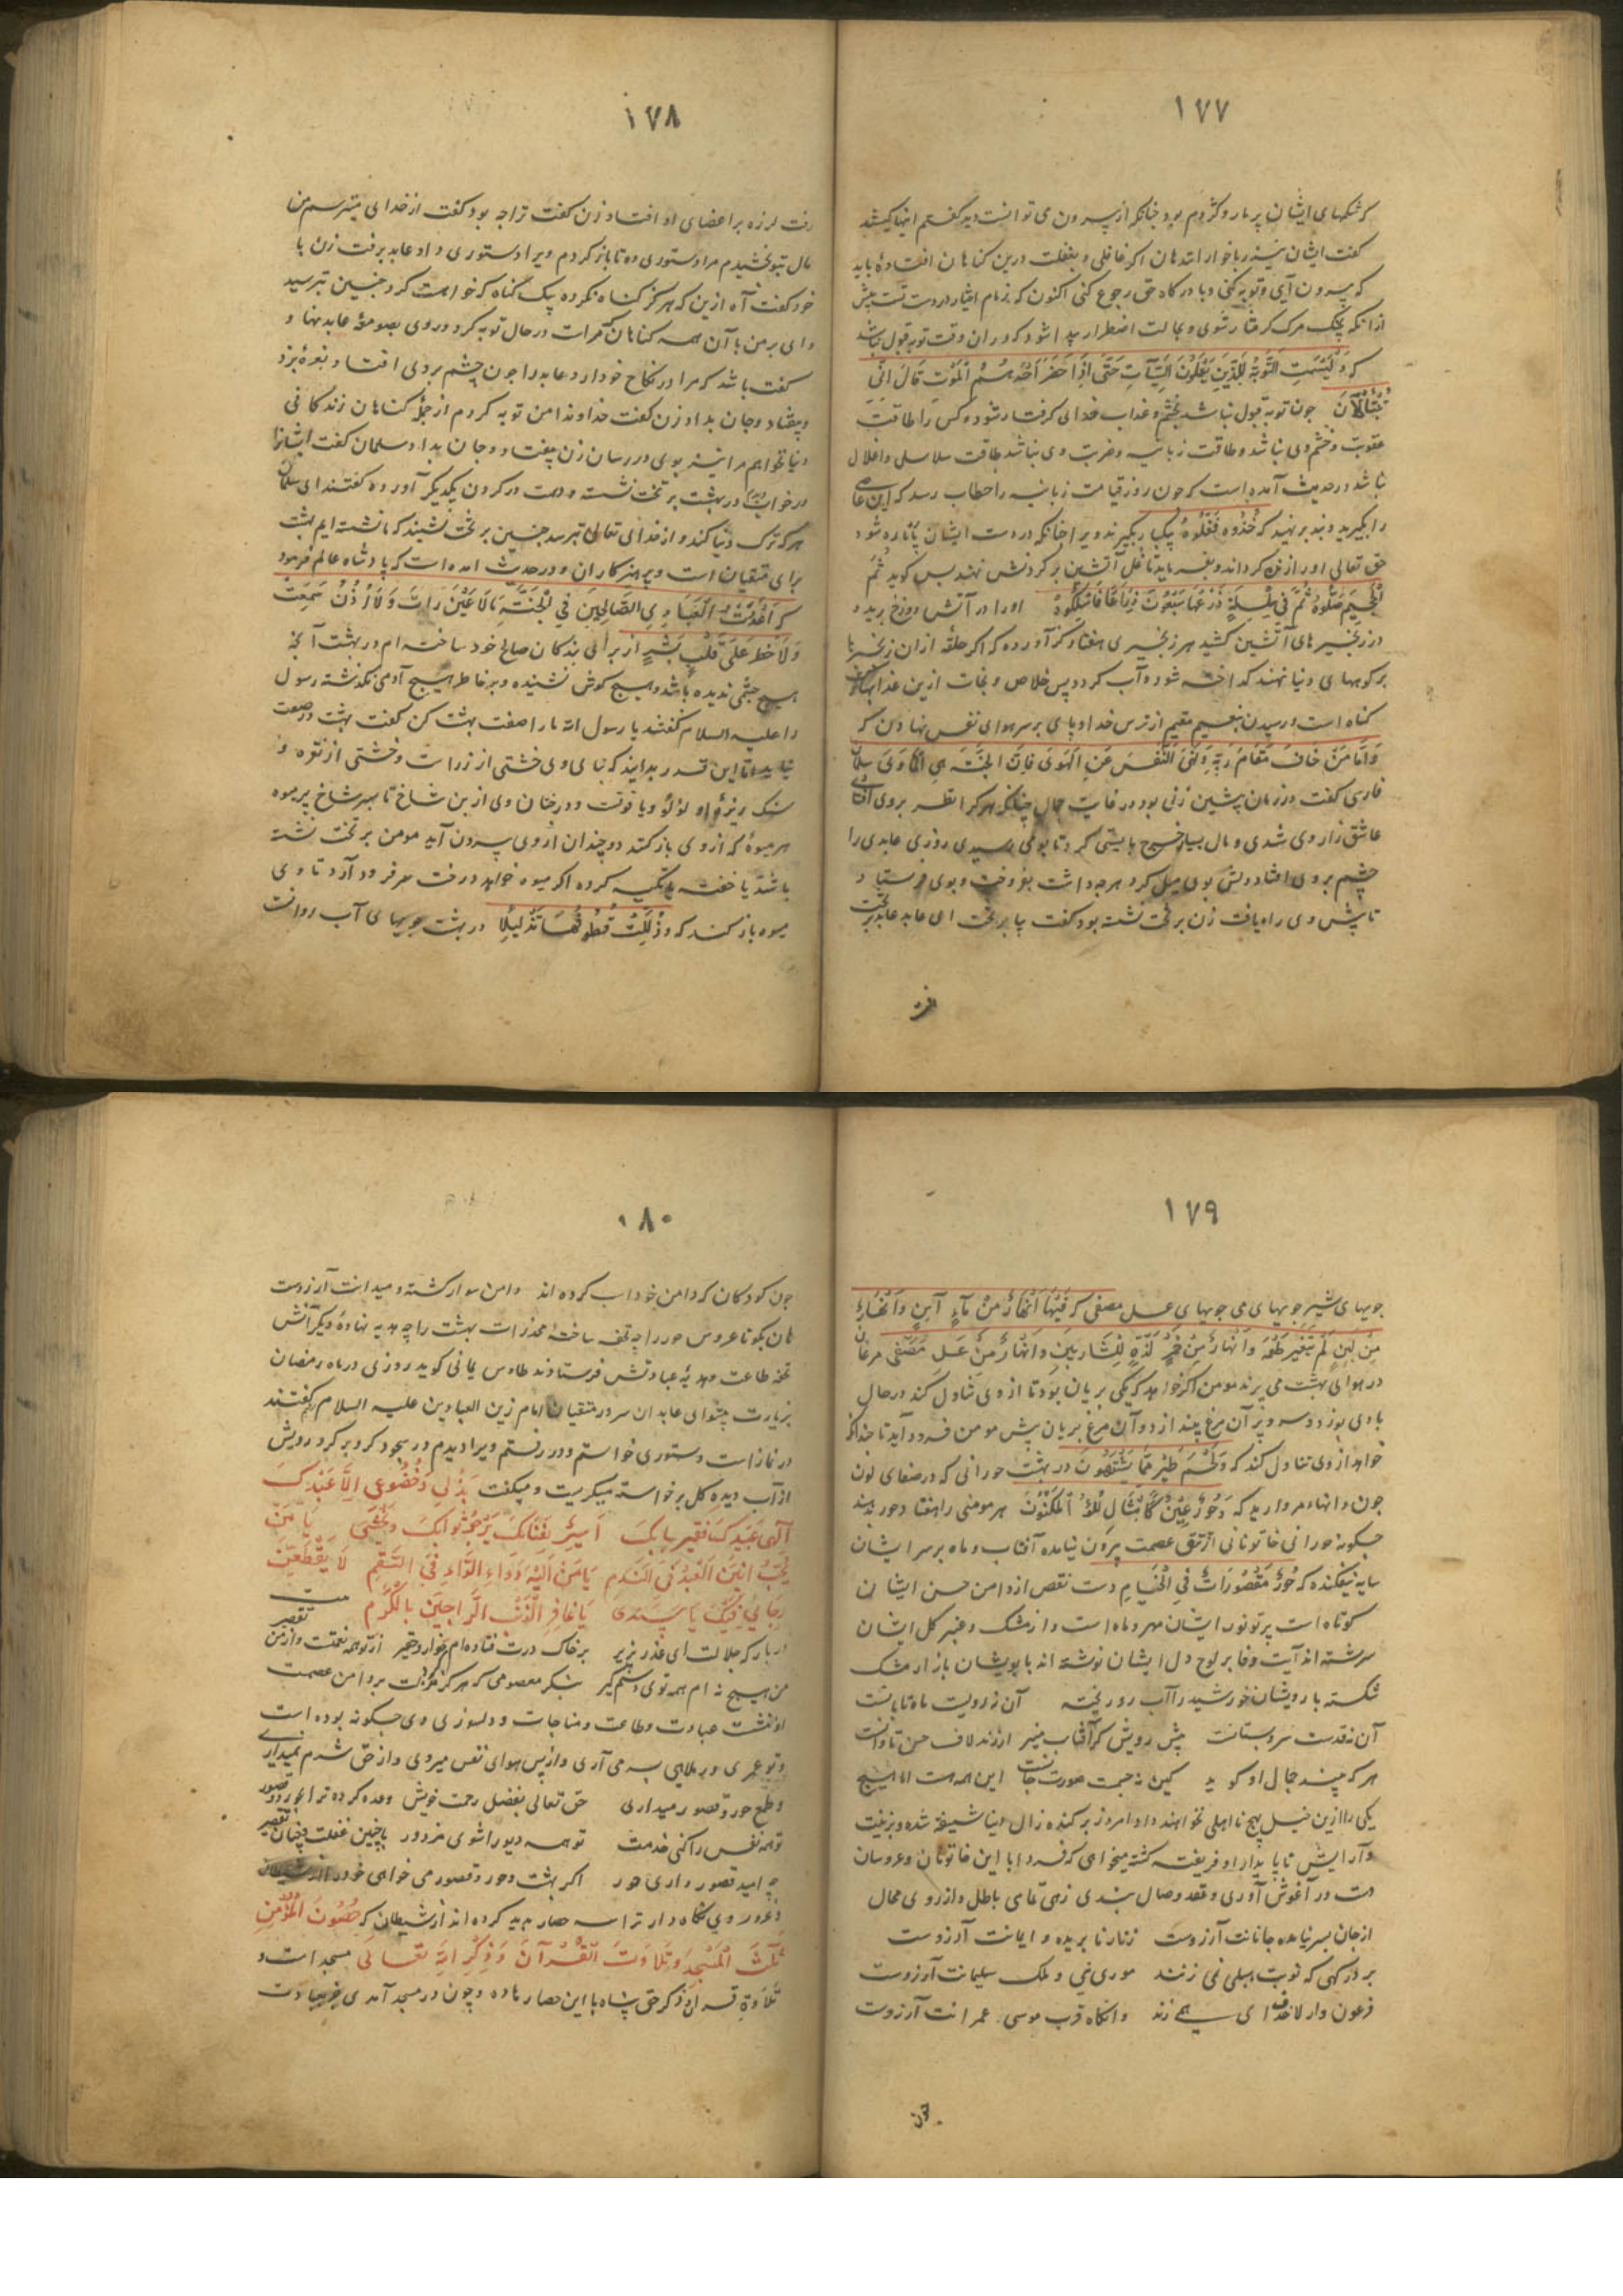 ١٧٧
که شکمهای ایشان پر مار و کژدم بود چنانکه از بیرون می توانست دید گفتم اینها کیستند
گفت ایشان نیز ربا خواران اند هان اگر غافلی و بغفلت درین گناهان افتاده باید
که بیرون آیی و توبه کنی و با درگاه حق رجوع کنی اکنون که زمام اختیار در دست تست پیش
از آنکه بچنگ مرگ گرفتار شوی و بحالت اضطرار پیدا شود که در آن وقت توبه قبول نباشد
که وَلَیْسَتِ التَّوْبَةُ لِلَّذِینَ یَعْمَلُونَ السَّیِّآتِ حَتَّی اِذَا حَضَرَ اَحَدَهُمُ الْمَوْتُ قَالَ اِنِّی
تُبْتُ الْآنَ چون توبه قبول نباشد بخشم و عذاب خدای گرفتار شود و کس را طاقت
عقوبت و خشم وی نباشد و طاقت زبانیه و ضربت وی نباشد طاقت سلاسل و اغلال
نباشد در حدیث آمده است که چون روز قیامت زبانیه را خطاب رسد که این عاصی
را بگیرید و بند بر نهید که خُذُوهُ فَغُلُّوهُ یکبار بگیرند ویرا چنانکه در دست ایشان پاره پاره شود
حق تعالی او را زنده گرداند و بفرماید تا غل آتشین بر گردنش نهند پس گوید ثُمَّ
الْجَحِیمَ صَلُّوهُ ثُمَّ فِی سِلْسِلَةٍ ذَرْعُهَا سَبْعُونَ ذِرَاعًا فَاسْلُکُوهُ او را در آتش دوزخ برید و
در زنجیرهای آتشین کشید هر زنجیری هفتاد گز آورده که اگر حلقه ازان زنجیرها
بر کوههای دنیا نهند گداخته شود و آب گردد پس خلاص و نجات ازین عذابها
گناه است و رسیدن بنعیم مقیم از ترس خدا و پای بر سر هوای نفس نهادن که
وَاَمَّا مَنْ خَافَ مَقَامَ رَبِّهِ وَنَهَی النَّفْسَ عَنِ الْهَوَی فَاِنَّ الْجَنَّةَ هِیَ الْمَأْوَی سلمان
فارسی گفت در زمان پیشین زنی بود در غایت جمال چنانکه هر که را نظر بر وی افتادی
عاشق زار وی شدی و مال بسیار خرج بایستی کرد تا بوی رسیدی روزی عابدی را
چشم بر وی افتاد دلش بوی میل کرد هرچه داشت بفروخت و بوی فرستاد و
تا پیش وی راه یافت زن بر تخت نشسته بود گفت بیا بر تخت ای عابد عابد بر تخت
١٧٨
رفت لرزه بر اعضای او افتاد زن گفت ترا چه بود گفت از خدای میترسم من
مال بتو بخشیدم مرا دستوری ده تا باز گردم ویرا دستوری داد عابد برفت زن با
خود گفت آه ازین که هرگز گناه نکرده یک گناه که خواست کرد چنین بترسید
وای بر من با آن همه گناهان که مراست در حال توبه کرد و روی بصومعه عابد نهاد و
گفت باشد که مرا در نکاح خود آرد عابد را چون چشم بر وی افتاد نعره بزد
و بیفتاد و جان بداد زن گفت خداوندا من توبه کردم از جمله گناهان زندگانی
دنیا نخواهم مرا نیز بوی در رسان زن بیفتاد و جان بداد سلمان گفت ایشانرا
در خواب دیدم در بهشت بر تخت نشسته و دست در گردن یکدیگر آورده گفتند ای سلمان
هر که ترک دنیا کند و از خدای تعالی بترسد چنین بر تخت نشیند که ما نشسته ایم بهشت
برای متقیان است و پرهیزکاران و در حدیث آمده است که پادشاه عالم فرمود
که اَعْدَدْتُ لِعِبَادِیَ الصَّالِحِینَ فِی الْجَنَّةِ مَا لَا عَیْنٌ رَاَتْ وَلَا اُذُنٌ سَمِعَتْ
وَلَا خَطَرَ عَلَی قَلْبِ بَشَرٍ از برای بندگان صالح خود ساخته ام در بهشت آنچه
هیچ چشمی ندیده باشد و هیچ گوش نشنیده و بر خاطر هیچ آدمی نگذشته رسول
را علیه السلام گفتند یا رسول الله ما را صفت بهشت کن گفت بهشت در صفت
نیاید اما این قدر بدانید که بنای وی خشتی از زر است و خشتی از نقره و
سنگ ریزه او لؤلؤ و یاقوت و درختان وی از بن شاخ تا سر شاخ پر میوه
هر میوه که از وی باز کنند دو چندان از وی بیرون آید مومن بر تخت نشسته
باشد یا خفته یا تکیه کرده اگر میوه خواهد درخت سر فرود آرد تا وی
میوه باز کند که وَذُلِّلَتْ قُطُوفُهَا تَذْلِیلًا در بهشت جویهای آب روانست
١٧٩
جویهای شیر جویهای می جویهای عسل مصفی که فِیهَا اَنْهَارٌ مِنْ مَاءٍ آسِنٍ وَاَنْهَارٌ
مِنْ لَبَنٍ لَمْ یَتَغَیَّرْ طَعْمُهُ وَاَنْهَارٌ مِنْ خَمْرٍ لَذَّةٍ لِلشَّارِبِینَ وَاَنْهَارٌ مِنْ عَسَلٍ مُصَفًّی مرغان
در هوای بهشت می پرند مومن اگر خواهد که یکی بریان بود تا از وی تناول کند در حال
بادی بوزد و سه و پر آن مرغ بیندازد و آن مرغ بریان پیش مومن فرود آید تا چندانکه
خواهد از وی تناول کند که وَلَحْمِ طَیْرٍ مِمَّا یَشْتَهُونَ در بهشت حورانی که در صفای لون
چون دانهاء مروارید که وَحُورٌ عِینٌ کَاَمْثَالِ اللُّؤْلُؤِ الْمَکْنُونِ هر مومنی را هفتاد حور بدهند
چگونه حورانی خاتونانی از تتق عصمت بیرون نیامده آفتاب و ماه بر سر ایشان
سایه نیفکنده که حُورٌ مَقْصُورَاتٌ فِی الْخِیَامِ دست نقص از دامن حسن ایشان
کوتاه است پرتو نور ایشان مهر و ماه است و از مشک و عنبر گل ایشان
سرشته اند آیت وفا بر لوح دل ایشان نوشته اند با بویشان بازار مشک
شکسته با رویشان خورشید را آب رو ریخته آن نه رویست ماه تابانست
آن نه قدست سرو بستانست پیش رویش گر آفتاب منیر ار زند لاف حسن تاوانست
هر که بیند جمال او گوید کین نه جسمت صورت جانست این همه هست اما هیچ
یکی را ازین خیل بهیچ نااهلی نخواهند داد امروز بر گنده زال دنیا شیفته شده و بزینت
و آرایش ناپایدار او فریفته گشته میخواهی که فردا با این خاتونان و عروسان
دست در آغوش آوری و عقد وصال بندی زهی تمنای باطل و آرزوی محال
از جان بسر نیامده جانانت آرزوست زنار نا بریده و ایمانت آرزوست
بر درگهی که نوبت ارنی زنند موری نئی و ملک سلیمانت آرزوست
فرعون وار لاف خدایی همی زند وانگاه قرب موسی عمرانت آرزوست
چون
١٨٠
چون کودکان که دامن خود اسب کرده اند دامن سوار گشته و میدانت آرزوست
هان بگو تا عروس حور را چه تحفه ساخته مخدرات بهشت را چه هدیه نهاده دیگرانش
تحفه طاعت و هدیه عبادتش فرستادند طاوس یمانی گوید روزی در ماه رمضان
بزیارت پیشوای عابدان سرور متقیان امام زین العابدین علیه السلام رفتم گفتند
در نماز است دستوری خواستم و در رفتم ویرا دیدم در سجود کرد بر کرد رویش
از آب دیده گل برخواسته میگریست و میگفت بِذُلِّی وَخُضُوعِی اِلَّا عَبْدِکَ
اِلَهِی عَبْدُکَ فَقِیرٌ بِبَابِکَ اَسِیرٌ بِفِنَائِکَ یَرْجُو ثَوَابَکَ وَیَخْشَی یَا مَنْ
یُحِبُّ اَنِینَ الْعَبْدِ فِی النَّدَمِ یَا مَنْ اِلَیْهِ دَوَاءُ الدَّاءِ فِی السَّقَمِ لَا یَقْطَعَنْ
رَجَائِی فِیکَ یَا سَیِّدِی یَا غَافِرَ الذَّنْبِ الرَّاجِینَ بِالْکَرَمِ
در بارگه جلالت ای عذر پذیر بر خاک درت فتاده ام خوار و حقیر از تو همه نعمتست و از من تقصیر
من هیچ نه ام همه توی دستم گیر بنگر معصومی که هرگز گرد زلت بر دامن عصمت
او ننشست عبادت و طاعت و مناجات و دلسوزی وی چگونه بوده است
و تو عمری در ملاهی بسر می آری و از پس هوای نفس میروی و از حق شرم نمیداری
و طمع حور و قصور میداری حق تعالی بفضل رحمت خویش وعده کرده ترا بحور و قصور
تو همه نفس را کنی خدمت تو همه دیو را شوی مزدور با چنین غفلت و چنان تقصیر
چه امید قصور داری و حور اگر بهشت و حور و قصور می خواهی خود را
و غرور وی نگاه دار ترا سه حصار پدید کرده اند از شیطان که حُصُونُ الْمُؤْمِنِ
ثَلَثٌ الْمَسْجِدُ وَتِلَاوَتُ الْقُرْآنِ وَذِکْرُ اللهِ تَعَالَی مسجد است و
تلاوة قرآن و ذکر حق پناه با این حصارها ده و چون در مسجد آمدی